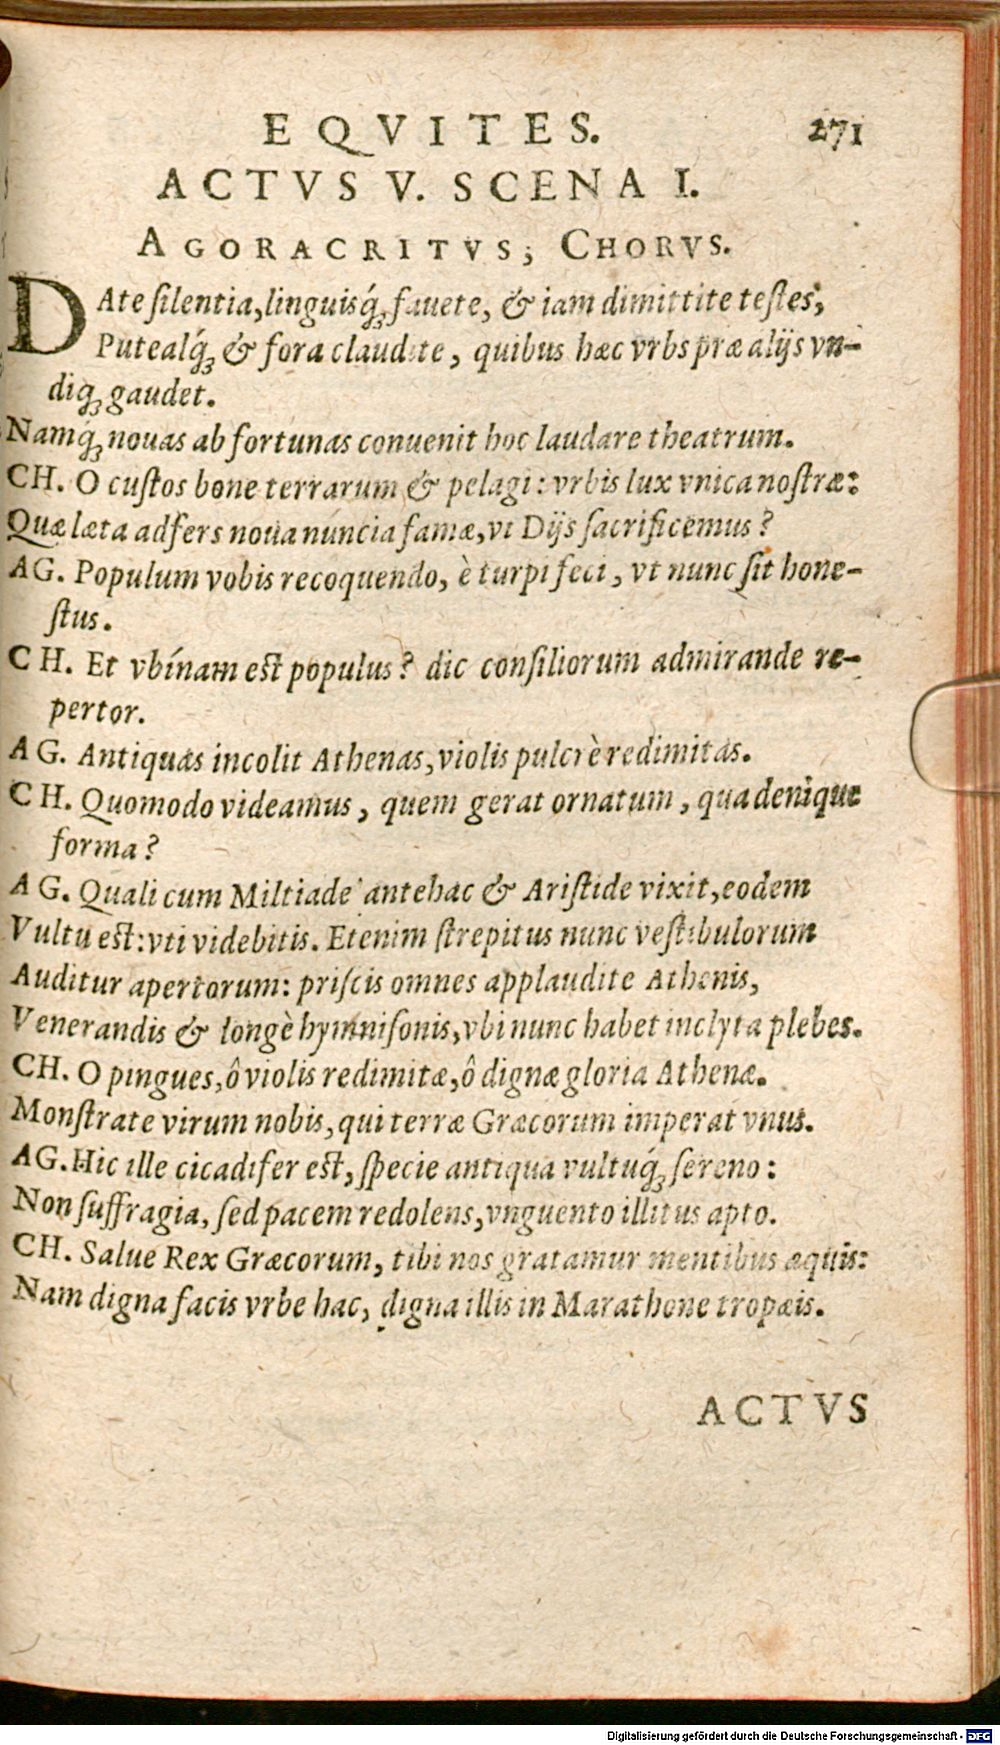 EQVITES. 271
ACTVS V. SCENA I.
AGORACRITVS; CHORVS.
DAte ſilentia, linguisq́ꝫ fauete, & iam dimittite teſtes,
Putealq́ꝫ & fora claudite, quibus hæc vrbs præ alijs vn-
diqꝫ gaudet.
Namq́ꝫ nouas ab fortunas conuenit hoc laudare theatrum.
CH. O cuſtos bone terrarum & pelagi: vrbis lux vnica noſtræ:
Quæ læta adfers noua nuncia famæ, vt Dijs ſacrificemus?
AG. Populum vobis recoquendo, è turpi feci, vt nunc ſit hone-
ſtus.
CH. Et vbínam eſt populus? dic conſiliorum admirande re-
pertor.
AG. Antiquas incolit Athenas, violis pulcrè redimitas.
CH. Quomodo videamus, quem gerat ornatum, qua denique
forma?
AG. Quali cum Miltiade antehac & Ariſtide vixit, eodem
Vultu eſt: vti videbitis. Etenim ſtrepitus nunc veſtibulorum
Auditur apertorum: priſcis omnes applaudite Athenis,
Venerandis & longè hymniſonis, vbi nunc habet inclyta plebes.
CH. O pingues, ô violis redimitæ, ô dignæ gloria Athenæ.
Monſtrate virum nobis, qui terræ Græcorum imperat vnus.
AG. Hic ille cicadifer eſt, ſpecie antiqua vultuq́ꝫ ſereno:
Non ſuffragia, ſed pacem redolens, vnguento illitus apto.
CH. Salue Rex Græcorum, tibi nos gratamur mentibus æquis:
Nam digna facis vrbe hac, digna illis in Marathone tropæis.
ACTVS
Digitalisierung gefördert durch die Deutsche Forschungsgemeinschaft - DFG